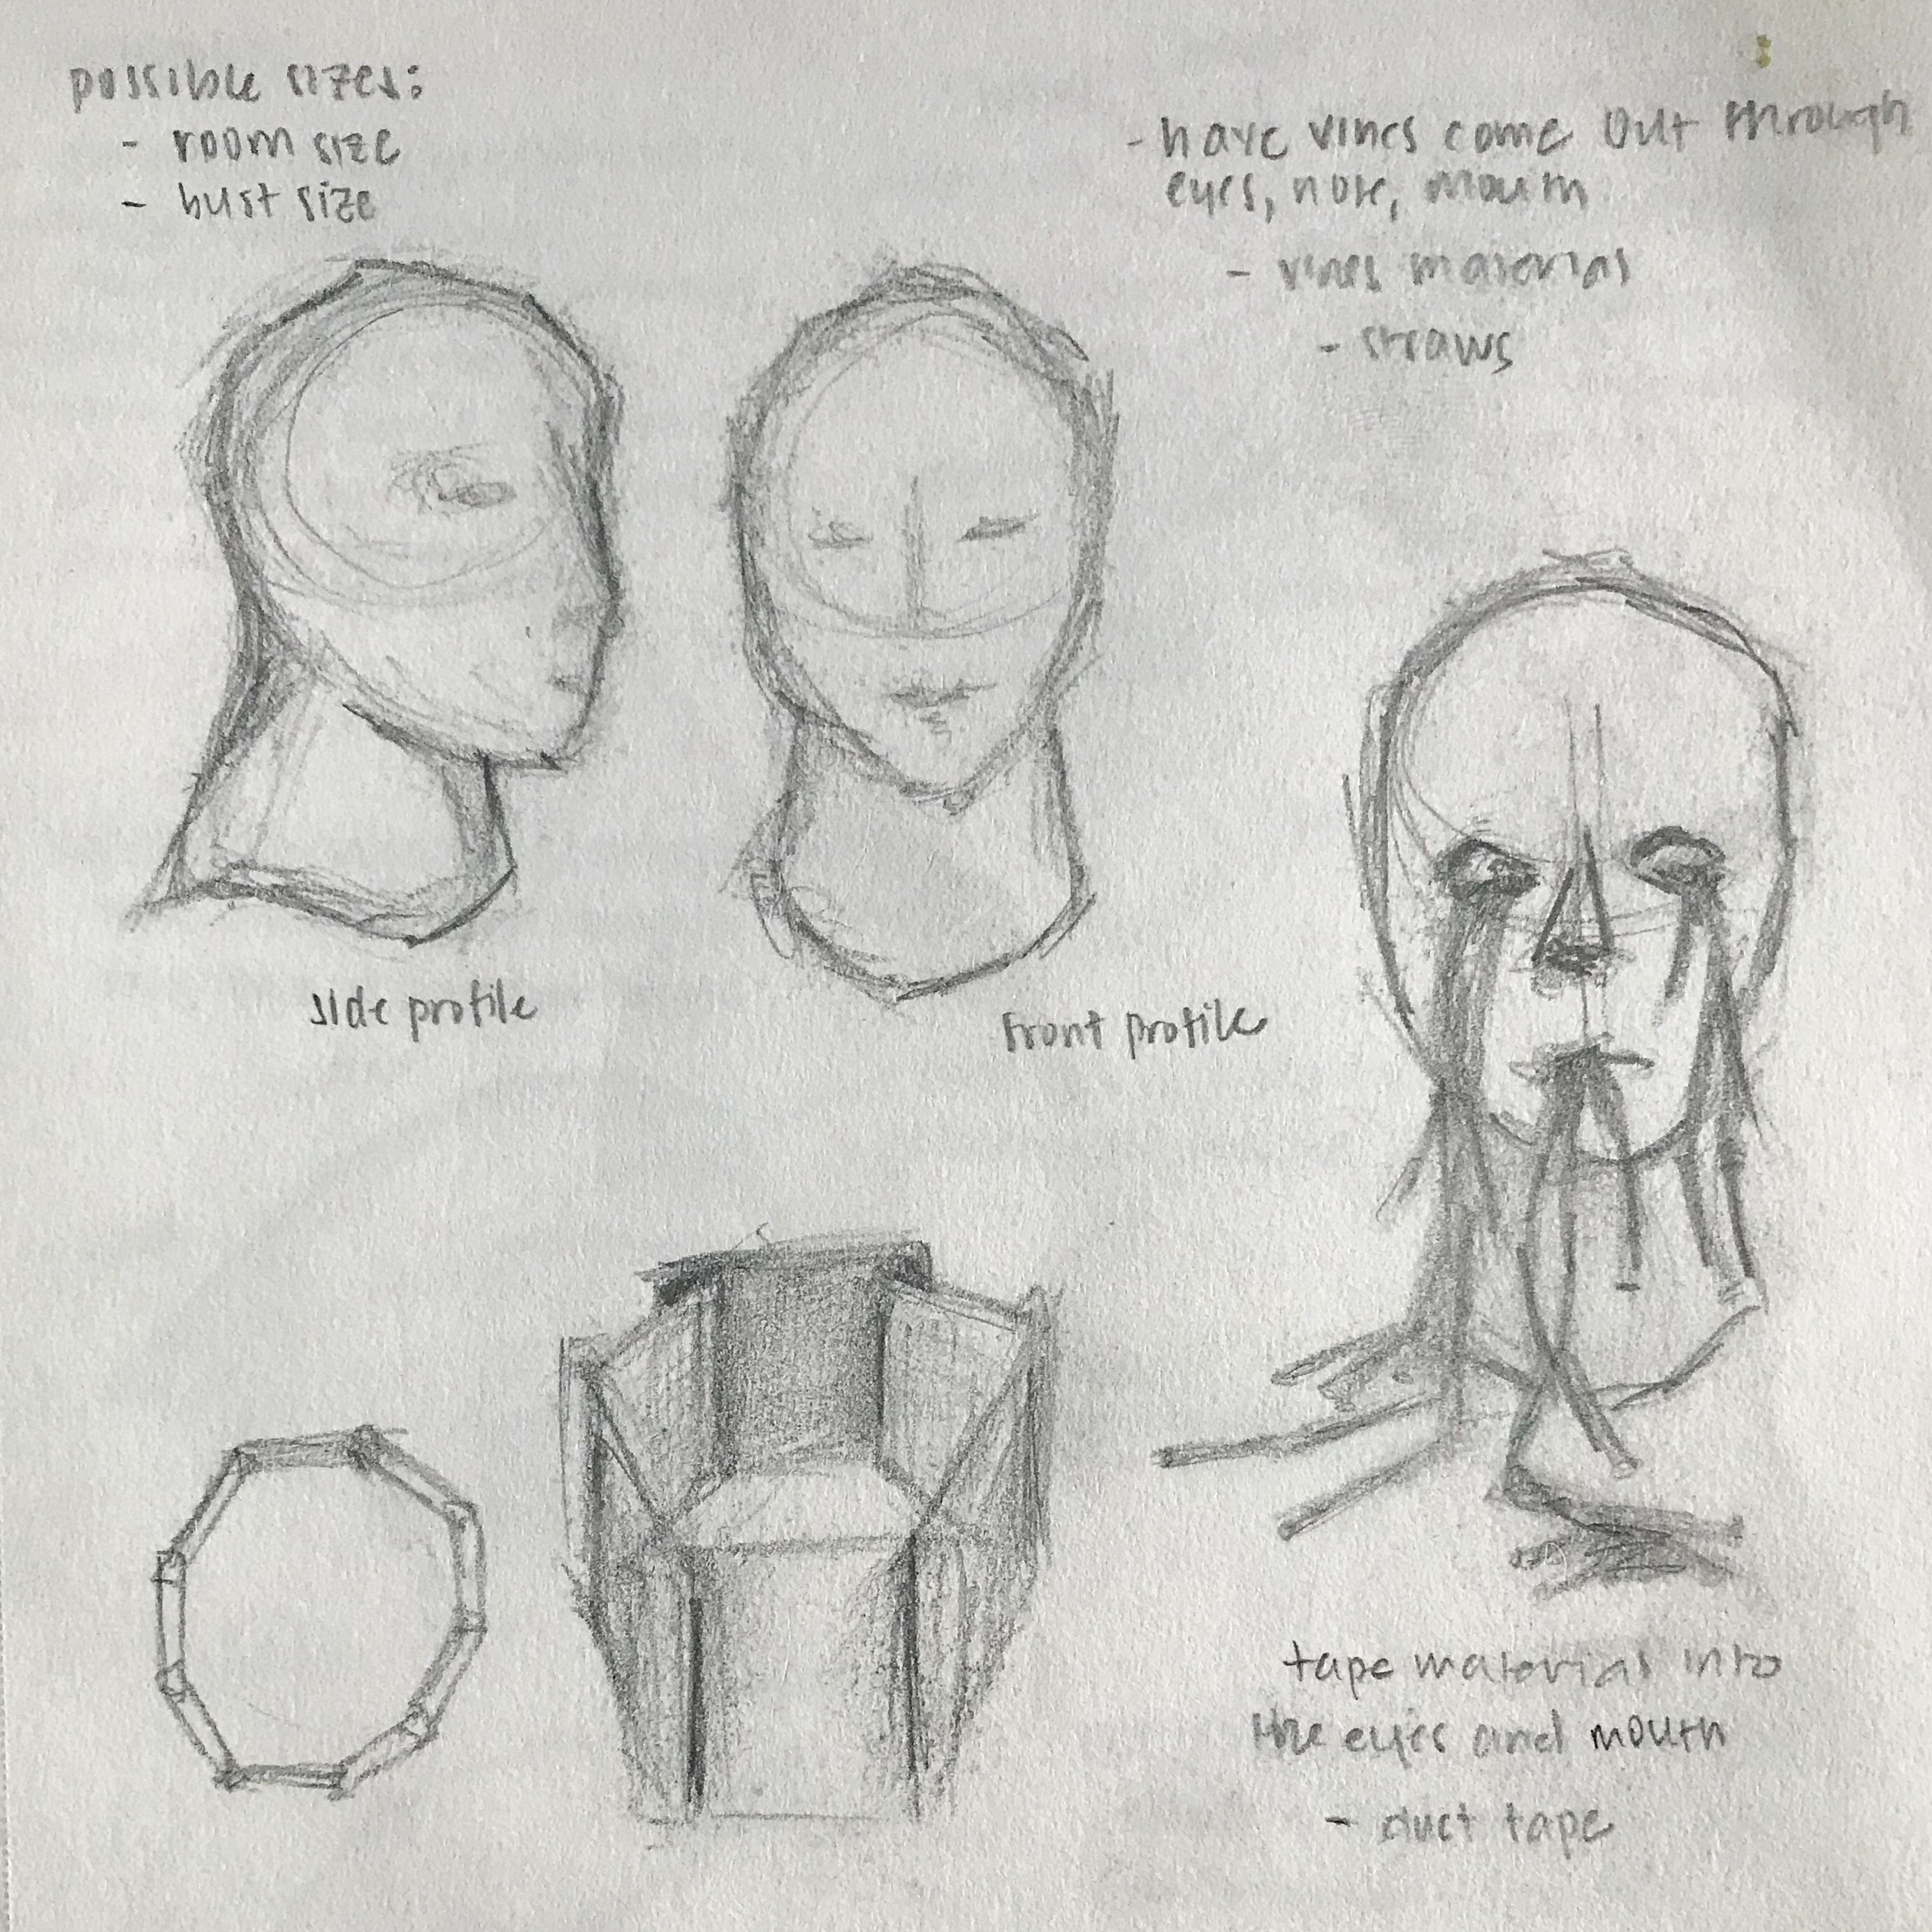 possible sizes:
- room size
- bust size
- have vines come out through
eyes, nose, mouth
- vines material
- straws
side profile
front profile
tape material into
the eyes and mouth
- duct tape